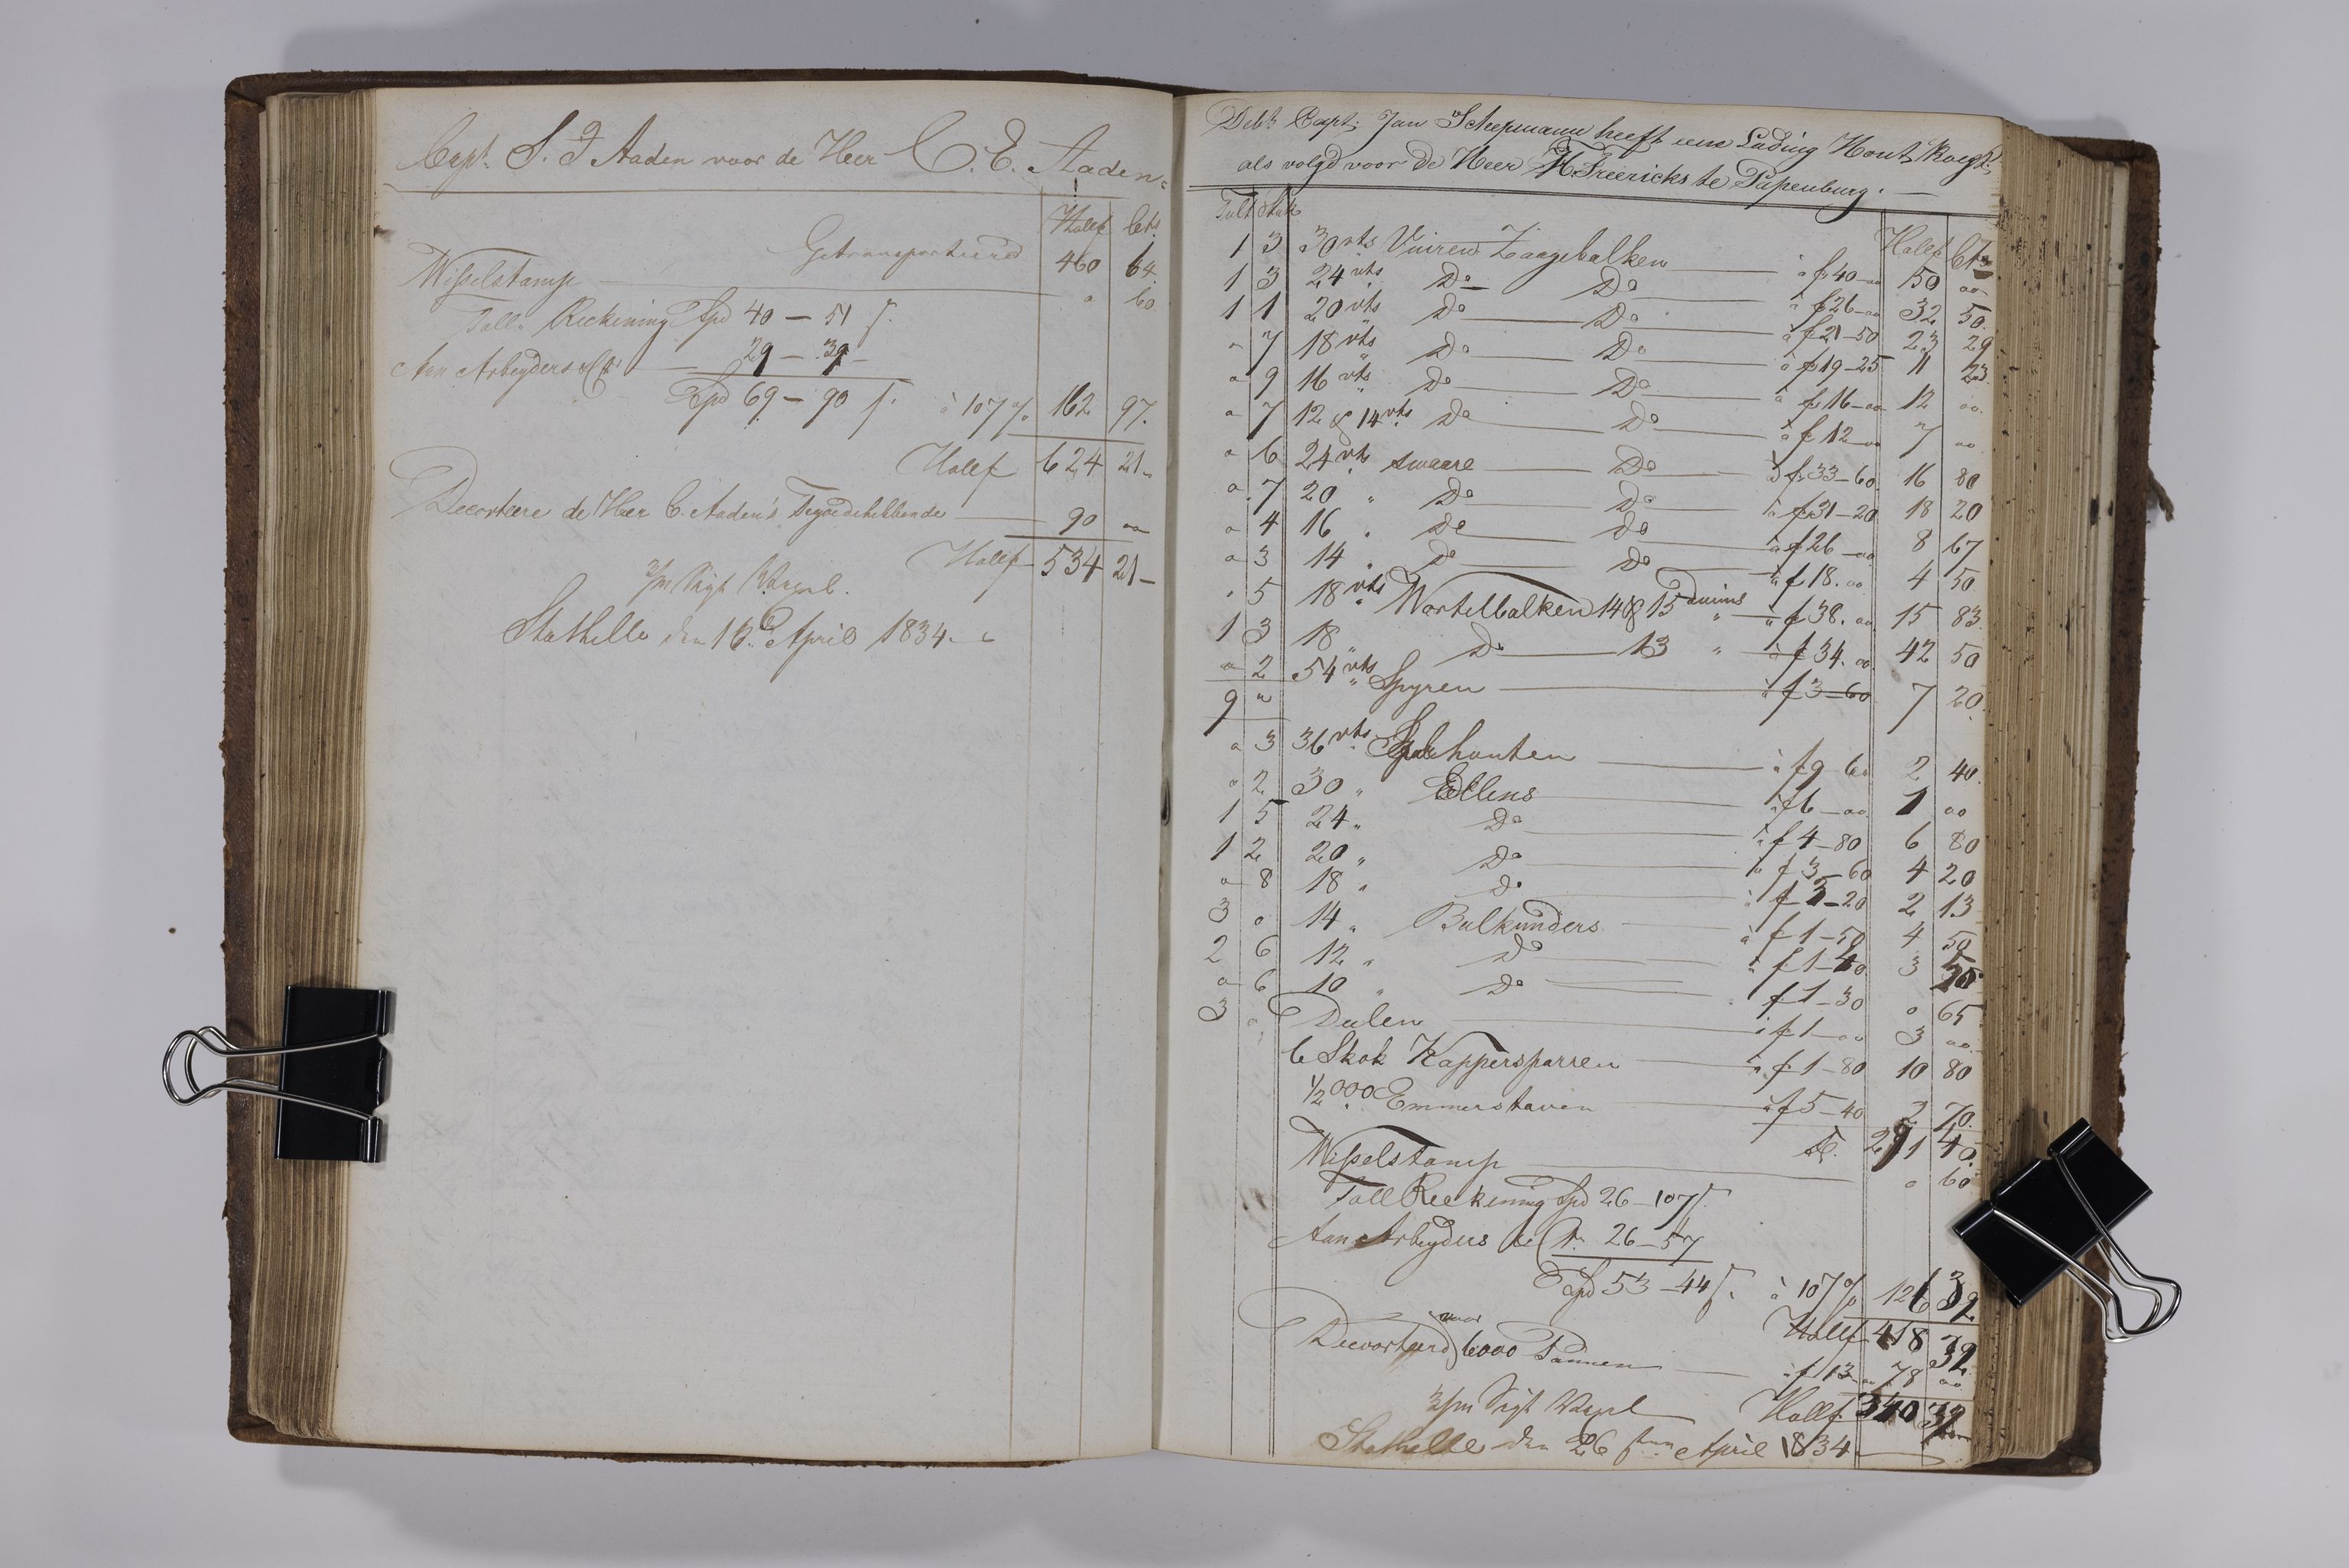 Capt. S. J Aaden voor de Heer C. E. Aaden.
Hollf Cts.
Getransporteered 460 64.
Wisselstamp — " 60
Toll Rekening Spd 40 — 51 ſ.
Aan Arbeyders &c 29 — 39
Spd 69 — 90 ſ. à 107 % 162 97.
Hollf 624 21 „
Decorteere de Heer C. Aaden's Tegoedehebbende — 90 „
Hollf 534 21 —
3/m Sigt Wexel.
Stathelle den 16de April 1834.
Debt Capt. Jan Schepmann heeft eene Lading Hout
als volgd voor de Heer H. Freericks te Papenburg. —
Tult Stuk
Hollf Cts
1 3 30 vts Vuiren Zaagebalken — à f 40 — „ 50 „
1 3 24 vts Do Do — à f 26 — „ 32 50.
1 1 20 vts Do — Do — à f 21 — 50 23 29
„ 7 18 vts Do — Do — à f 19 — 25 11 23.
„ 9 16 vts Do — Do — à f 16 — „ 12 „
„ 7 12 & 14 vts Do — Do — à f 12 — „ 7 „
„ 6 24 vts swaare — Do — à f 33 — 60 16 80
„ 7 20 „ Do — Do — à f 31 — 20 18 20
„ 4 16 „ Do — Do — à f 26 — „ 8 67
„ 3 14 „ Do — Do — à f 18. „ 4 50.
„ 5 18 vts Wortelbalken 14 & 15 duims — à f 38. „ 15 83.
1 3 18 „ Do — 13 „ — à f 34. „ 42 50
„ 2 54 vts Spyren — à f 3 — 60 7 20.
9 „
„ 3 36 vts houten — à f 9 60 2 40.
„ 2 30 „ Ellens — à f 6 — „ 1 „
1 5 24 „ Do — à f 4 — 80 6 80
1 2 20 „ Do — à f 3 — 60 4 20
„ 8 18 „ Do — à f 3 — 20 2 13
3 „ 14 „ Bulkunders — à f 1 — 50 4 50
2 6 12 „ Do — à f 1 — 40 3 50
„ 6 10 „ Do — f 1 — 30 „ 65
3 „ Deelen — à f 1 — „ 3 „
6 Skok Kappersparren — à f 1 — 80 10 80
1/2 000 Emmerstaven — à f 5 — 40 2 70.
291 40.
Wisselstamp — „ 60
Toll Reekening Spd 26 — 107 ſ.
Aan Arbeyders &c 26 — 57
Spd 53 — 44 ſ. à 107 % 126 32
Hollf 418 32
Decorteerd voor 6000 Pannen — à f 13 — „ 78 „
3/m Sigt Wexel Hollf 340 32
Stathelle den 26sten April 1834